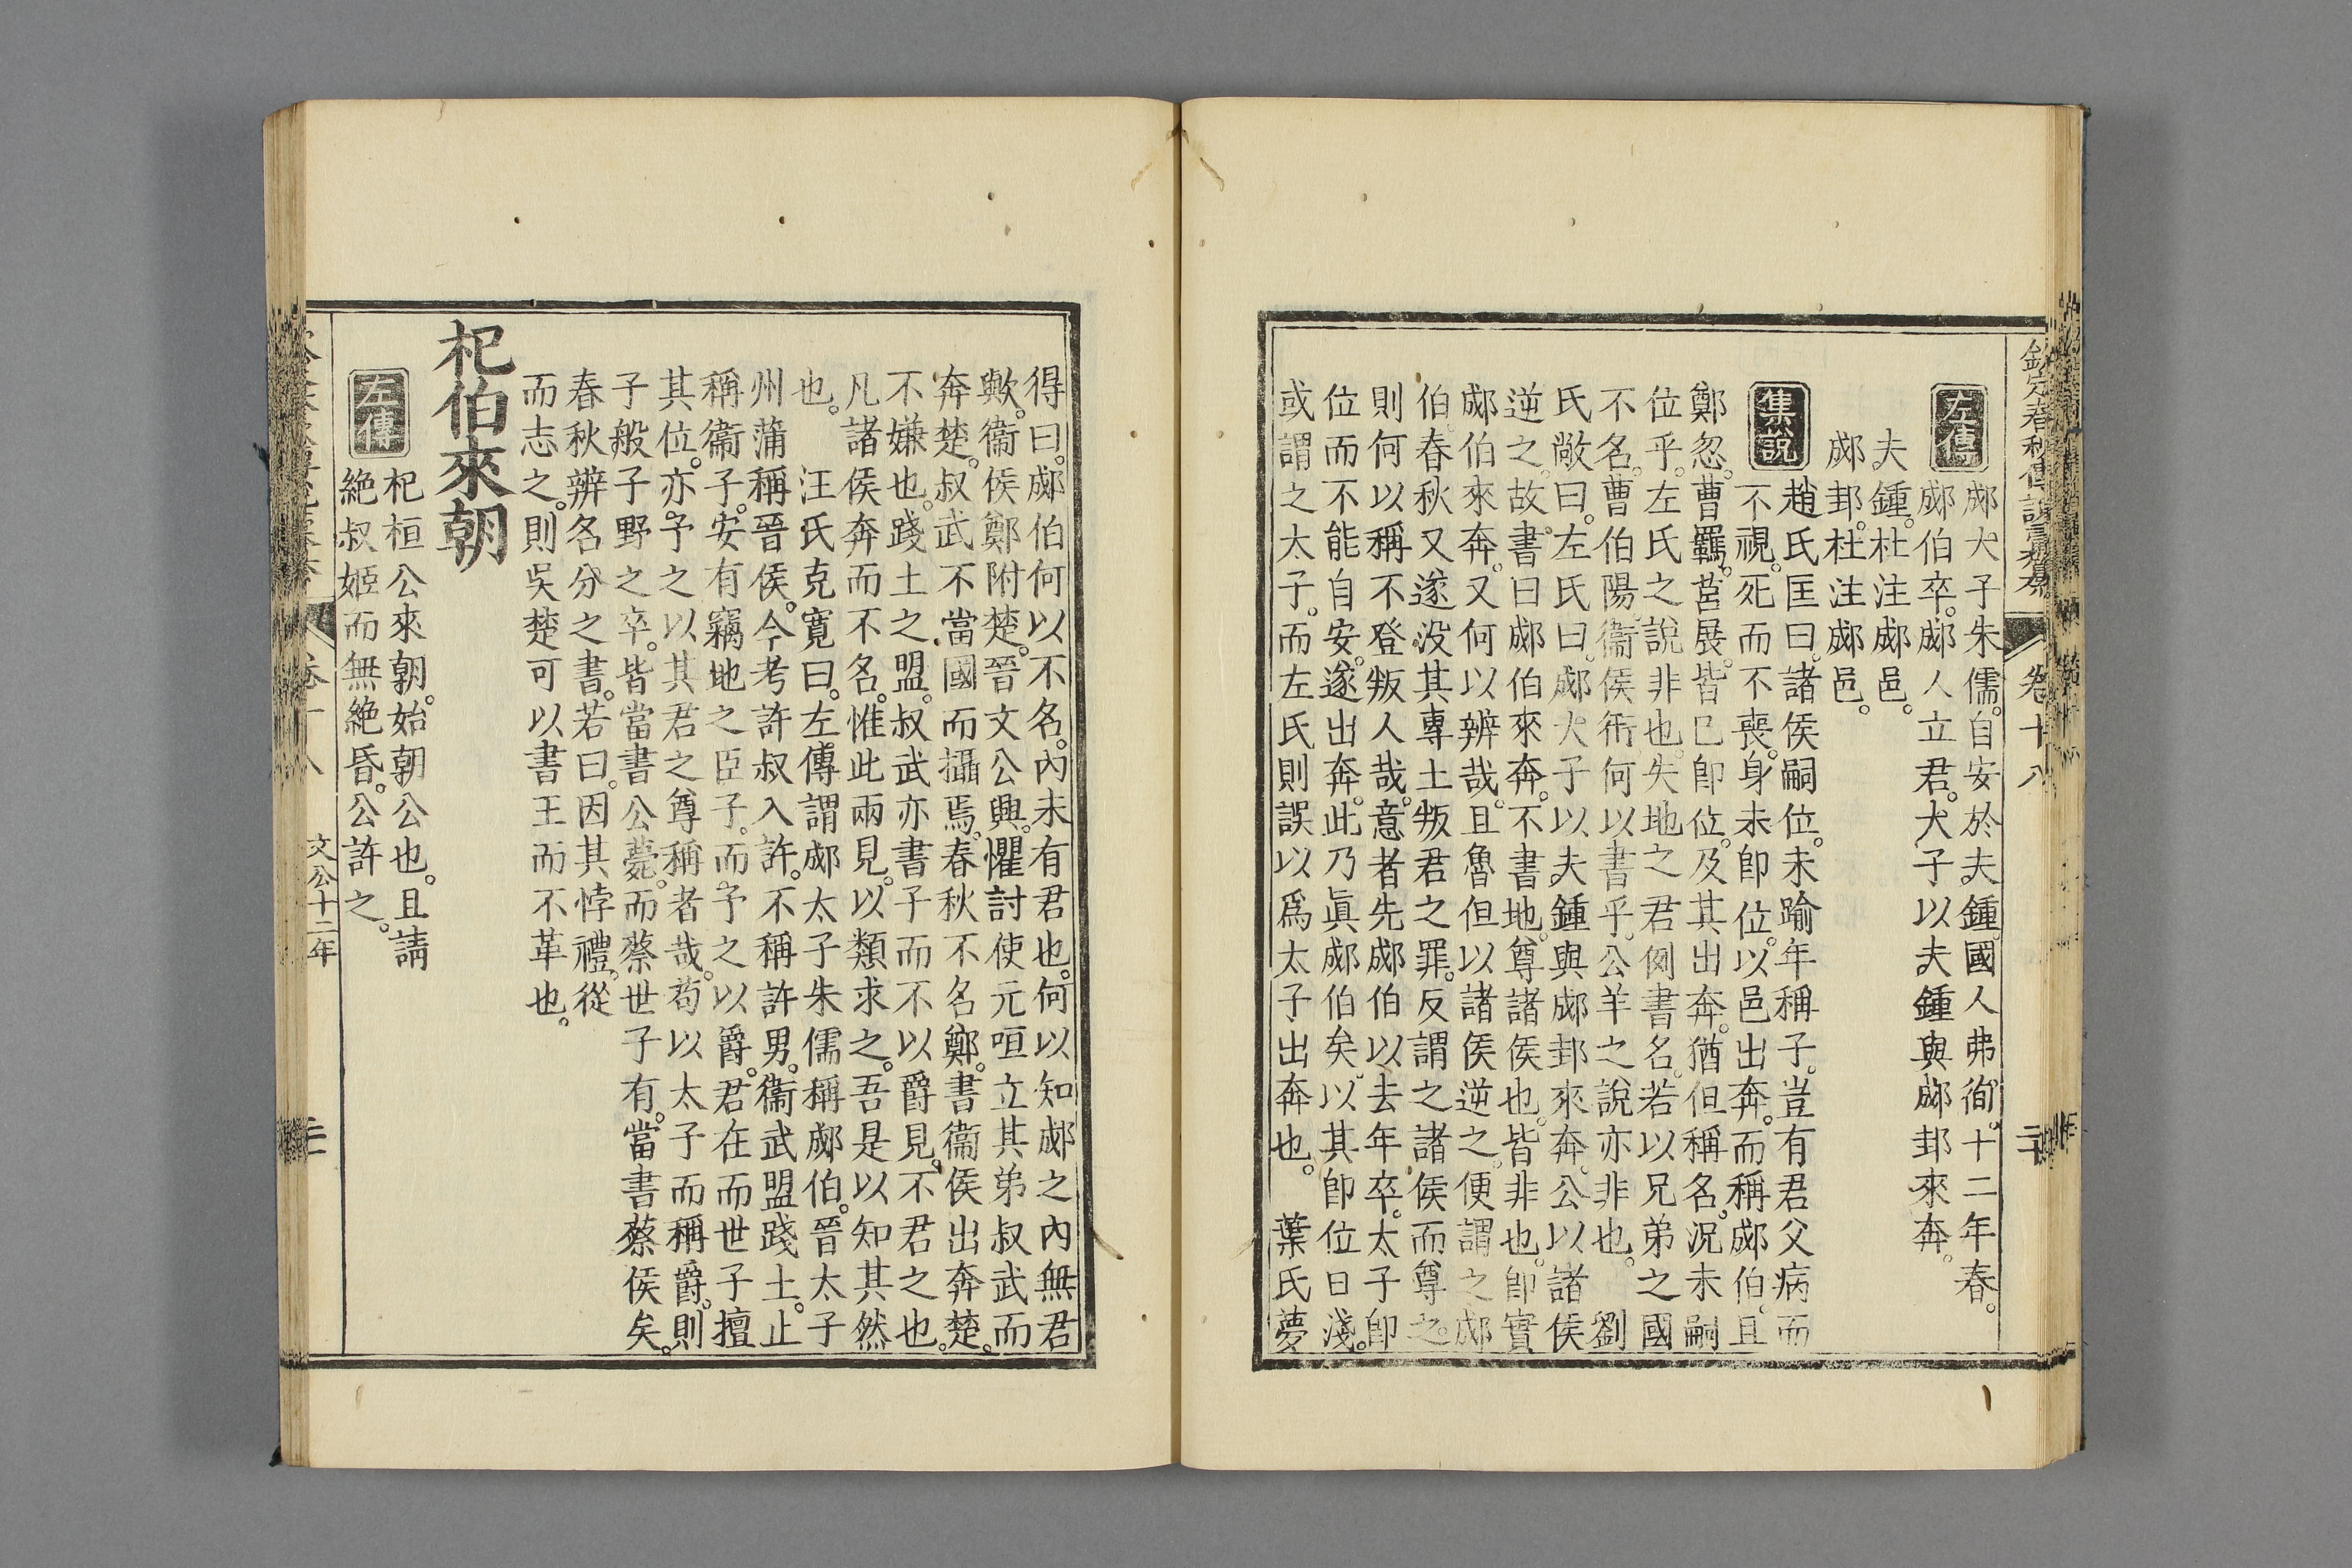 欽定春秋傳說彙纂
卷十八
左傳
郕大子朱儒。自安於夫鍾。國人弗徇。十二年春。
郕伯卒。郕人立君。大子以夫鍾與郕邽來奔。
夫鍾。杜注郕邑。
郕邽。杜注郕邑。
集說
趙氏匡曰。諸侯嗣位。未踰年稱子。豈有君父病而
不視。死而不喪。身未卽位。以邑出奔。而稱郕伯。且
鄭忽。曹羈。莒展。皆已卽位。及其出奔。猶但稱名。況未嗣
位乎。左氏之說非也。失地之君例書名。若以兄弟之國
不名。曹伯陽。衞侯衎。何以書乎。公羊之說亦非也。 劉
氏敞曰。左氏曰。郕大子以夫鍾與郕邽來奔。公以諸侯
逆之。故書曰郕伯來奔。不書地。尊諸侯也。皆非也。卽實
郕伯來奔。又何以辨哉。且魯但以諸侯逆之。便謂之郕
伯。春秋又遂沒其專土叛君之罪。反謂之諸侯而尊之。
則何以稱不登叛人哉。意者先郕伯以去年卒。太子卽
位而不能自安。遂出奔。此乃眞郕伯矣。以其卽位日淺。
或謂之太子。而左氏則誤以爲太子出奔也。 葉氏夢
得曰。郕伯何以不名。內未有君也。何以知郕之內無君
歟。衞侯鄭附楚。晉文公興。懼討使元咺立其弟叔武而
奔楚。叔武不當國而攝焉。春秋不名鄭。書衞侯出奔楚。
不嫌也。踐土之盟。叔武亦書子而不以爵見。不君之也。
凡諸侯奔而不名。惟此兩見。以類求之。吾是以知其然
也。 汪氏克寬曰。左傳謂郕太子朱儒稱郕伯。晉太子
州蒲稱晉侯。今考許叔入許。不稱許男。衞武盟踐土。止
稱衞子。安有竊地之臣子。而予之以爵。君在而世子擅
其位。亦予之以其君之尊稱者哉。苟以太子而稱爵。則
子般子野之卒。皆當書公薨。而蔡世子有。當書蔡侯矣。
春秋辨名分之書。若曰。因其悖禮。從
而志之。則吳楚可以書王而不革也。
杞伯來朝
左傳
杞桓公來朝。始朝公也。且請
絶叔姬而無絶昏。公許之。
文公十二年